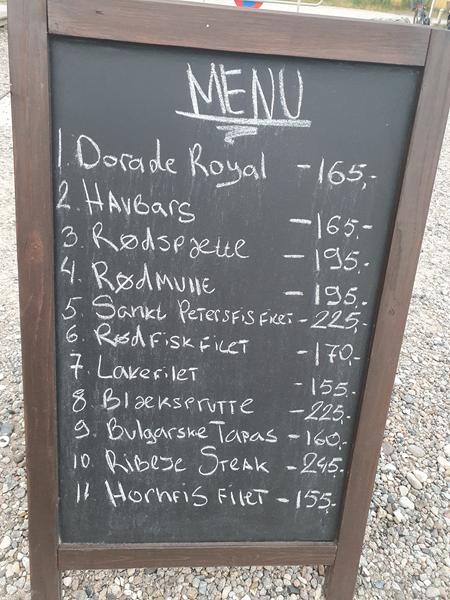 MENU
1. Dorade Royal - 165,-
2. Havbars - 165,-
3. Rødspætte - 195,-
4. Rødmulle - 195,-
5. Sankt Petersfisfilet - 225,-
6. Rødfiskfilet - 170,-
7. Lakefilet - 155,-
8 Blæksprutte - 225,-
9. Bulgarske Tapas - 160,-
10. Ribeje Steak - 245,-
11 Hornfisfilet - 155,-